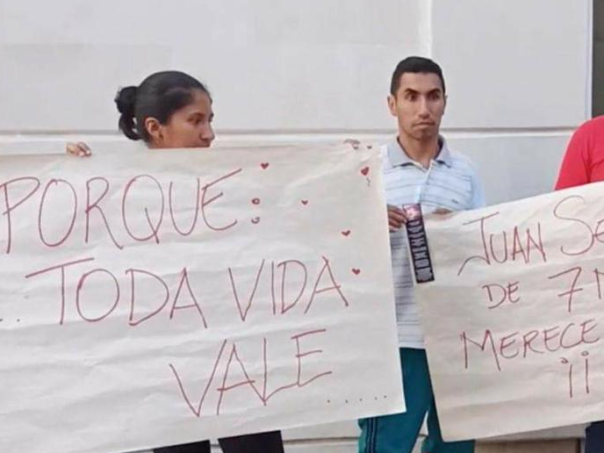 PORQUE:
... TODA VIDA
VALE .....
JUAN SE
DE 7
MERECE
¡¡